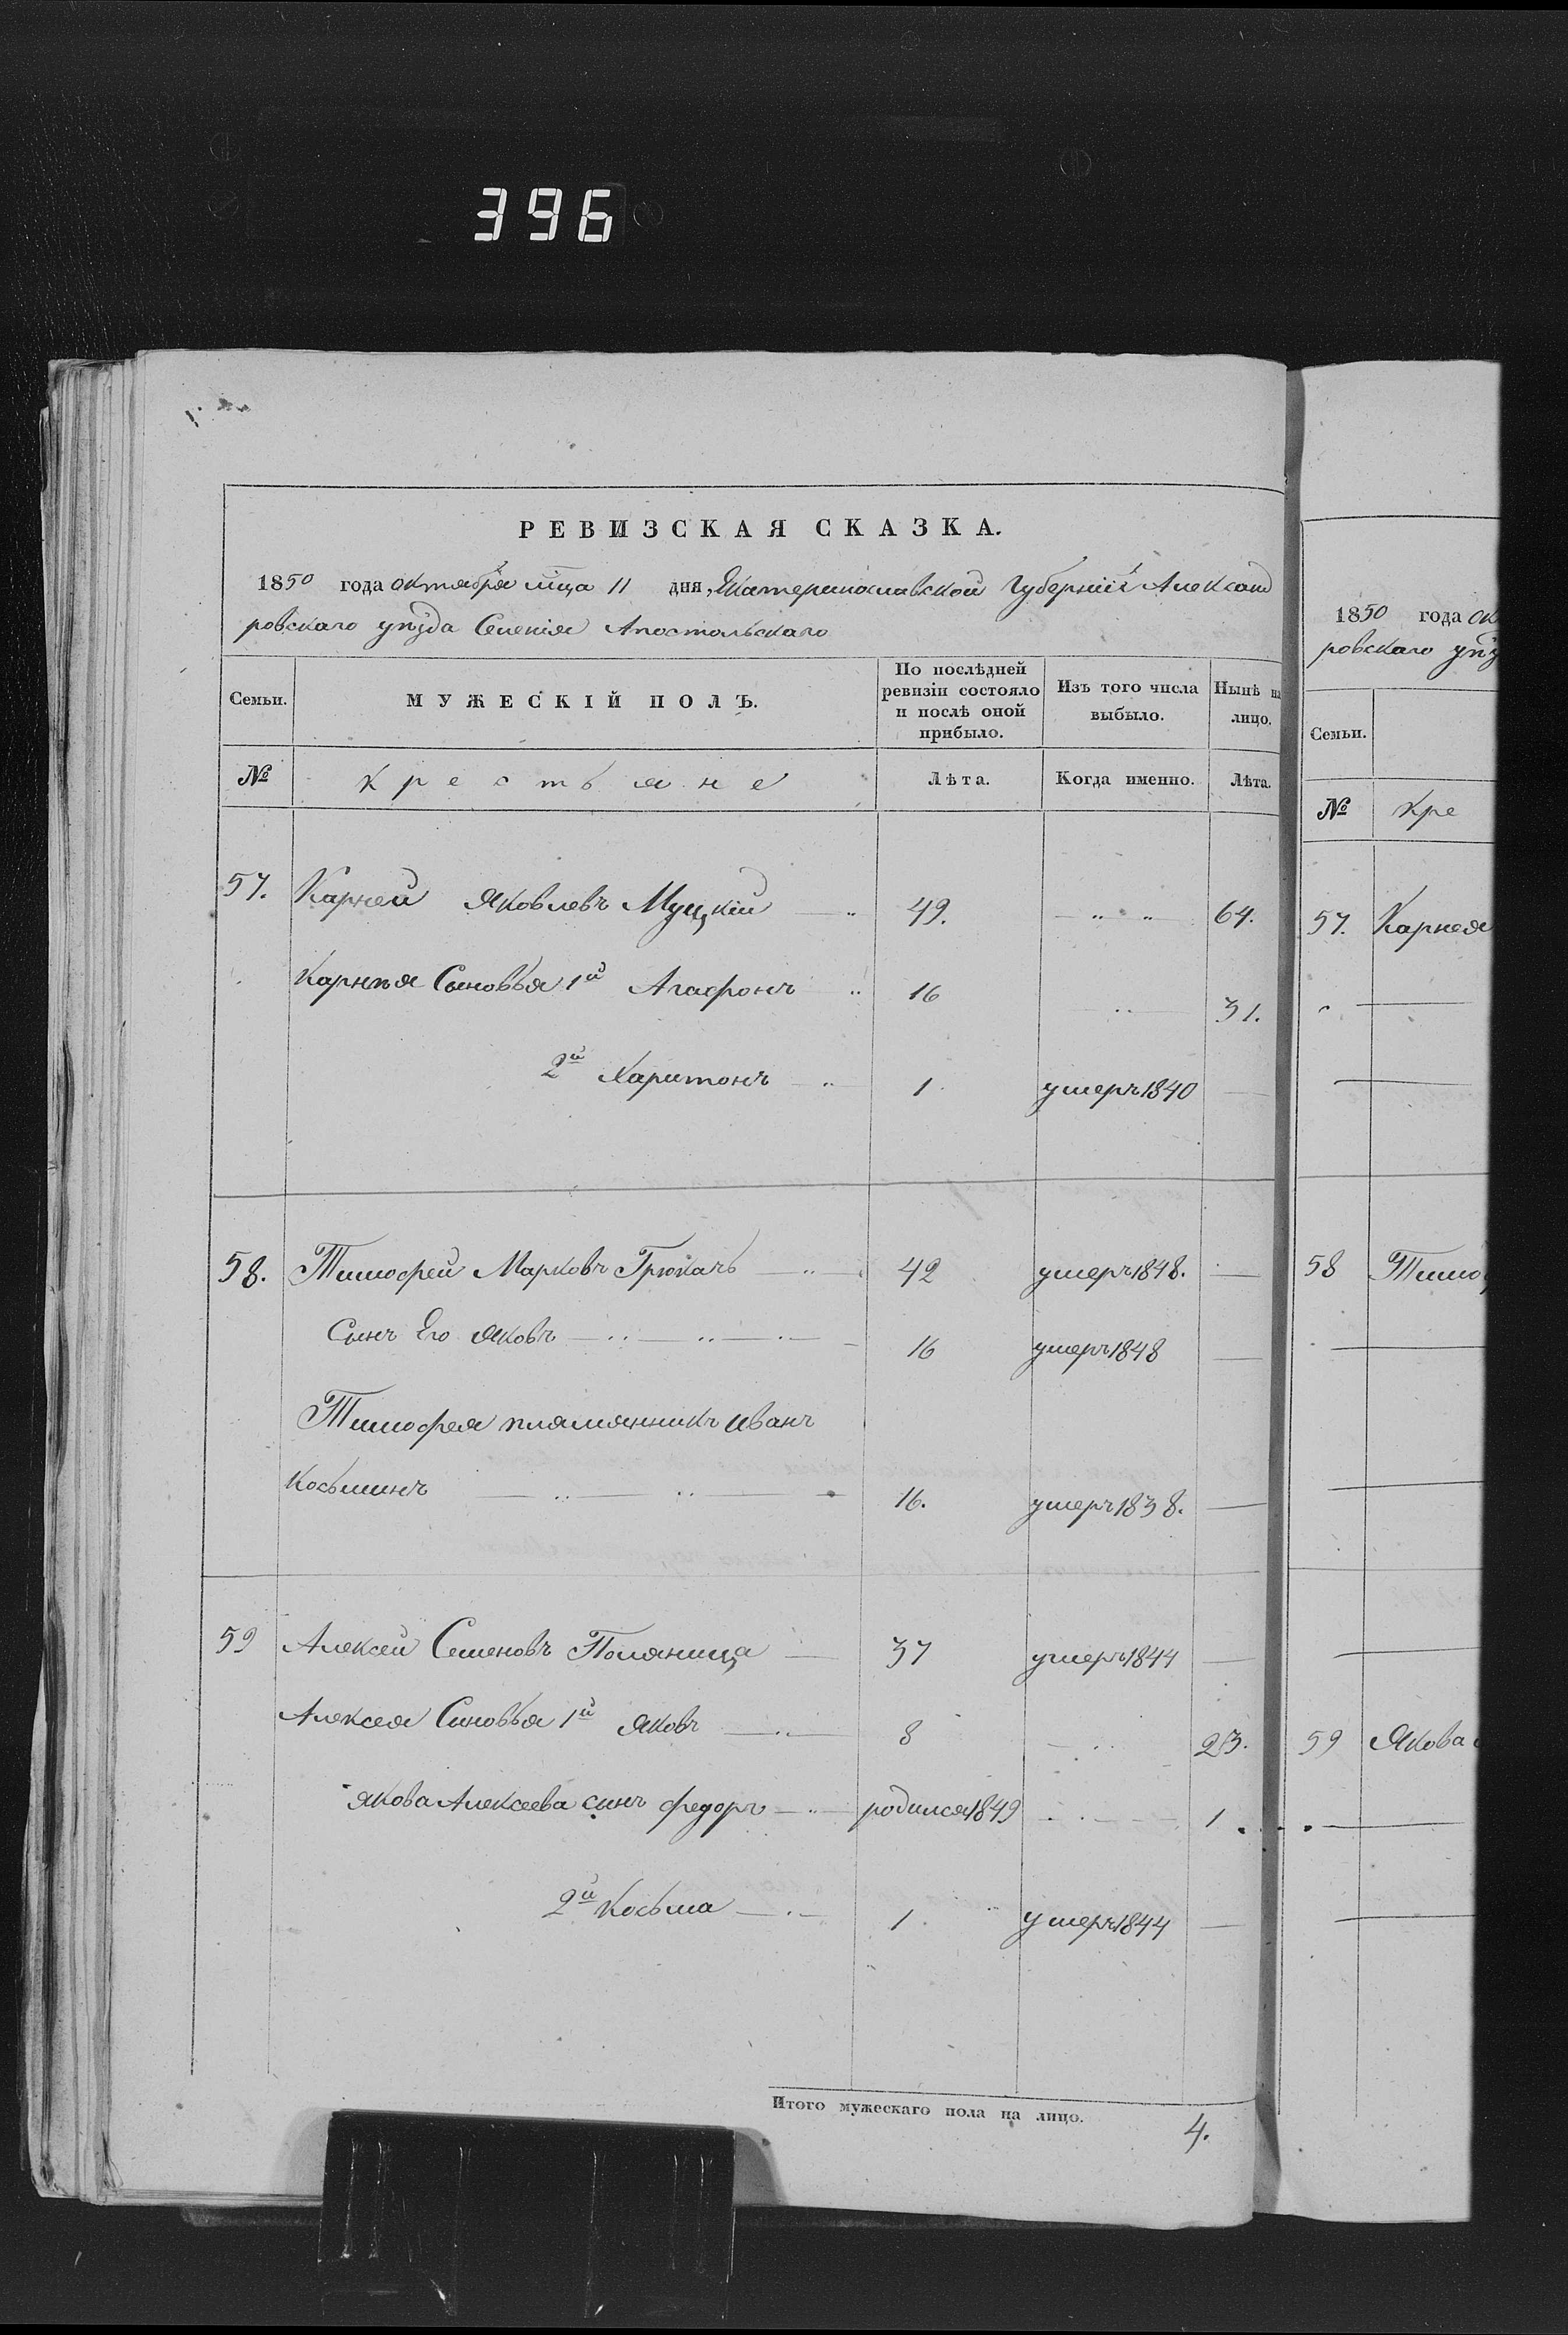 396
РЕВИЗСКАЯ СКАЗКА.
1850 года октября мца 11 дня, Екатеринославской Губерніи Александ
ровскаго уѣзда Селенія Апостольскаго
Семьи. МУЖЕСКІЙ ПОЛЪ. По послѣдней ревизіи состояло и послѣ оной прибыло. Изъ того числа выбыло. Нынѣ на лицо.
№ Крестьяне Лѣта. Когда именно. Лѣта.
57. Карней Яковлевъ Муцкій 49. 64.
Карнѣя Сыновья 1й Агафонъ 16 31.
2й Харитонъ 1 умеръ 1840
58. Тимофей Марковъ Грюкачъ 42 умеръ 1848.
Сынъ Его Яковъ 16 умеръ 1848
Тимофея племянникъ Иванъ
Косьминъ 16. умеръ 1838.
59 Алексей Семеновъ Поляница 37 умеръ 1844
Алексея Синовья 1й Яковъ 8 23.
Якова Алексеева синъ Федоръ родился 1849 1
2й Косьма 1 умеръ 1844
Итого мужескаго пола на лицо. 4.
1850 года ок
ровскаго уѣз
Семьи.
№ Кре
57. Карнея
58 Тимоф
59 Якова